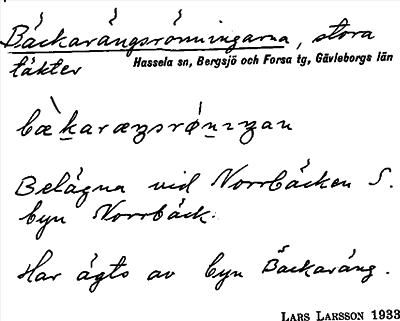 Bäckarängsrönningarna, stora
täkter
Hassela sn, Bergsjö och Forsa tg, Gävleborgs län
Belägna vid Norrbäcken S.
byn Norrbäck.
Har ägts av byn Bäckaräng.
LARS LARSSON 1933